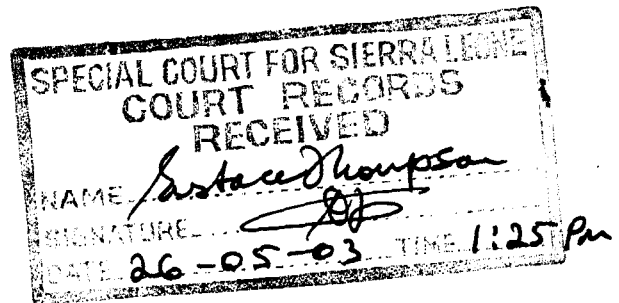 SPECIAL COURT FOR SIERRA LEONE
COURT RECORDS
RECEIVED
NAME Eustace Thompson
SIGNATURE
DATE 26-05-03 TIME 1:25 Pm